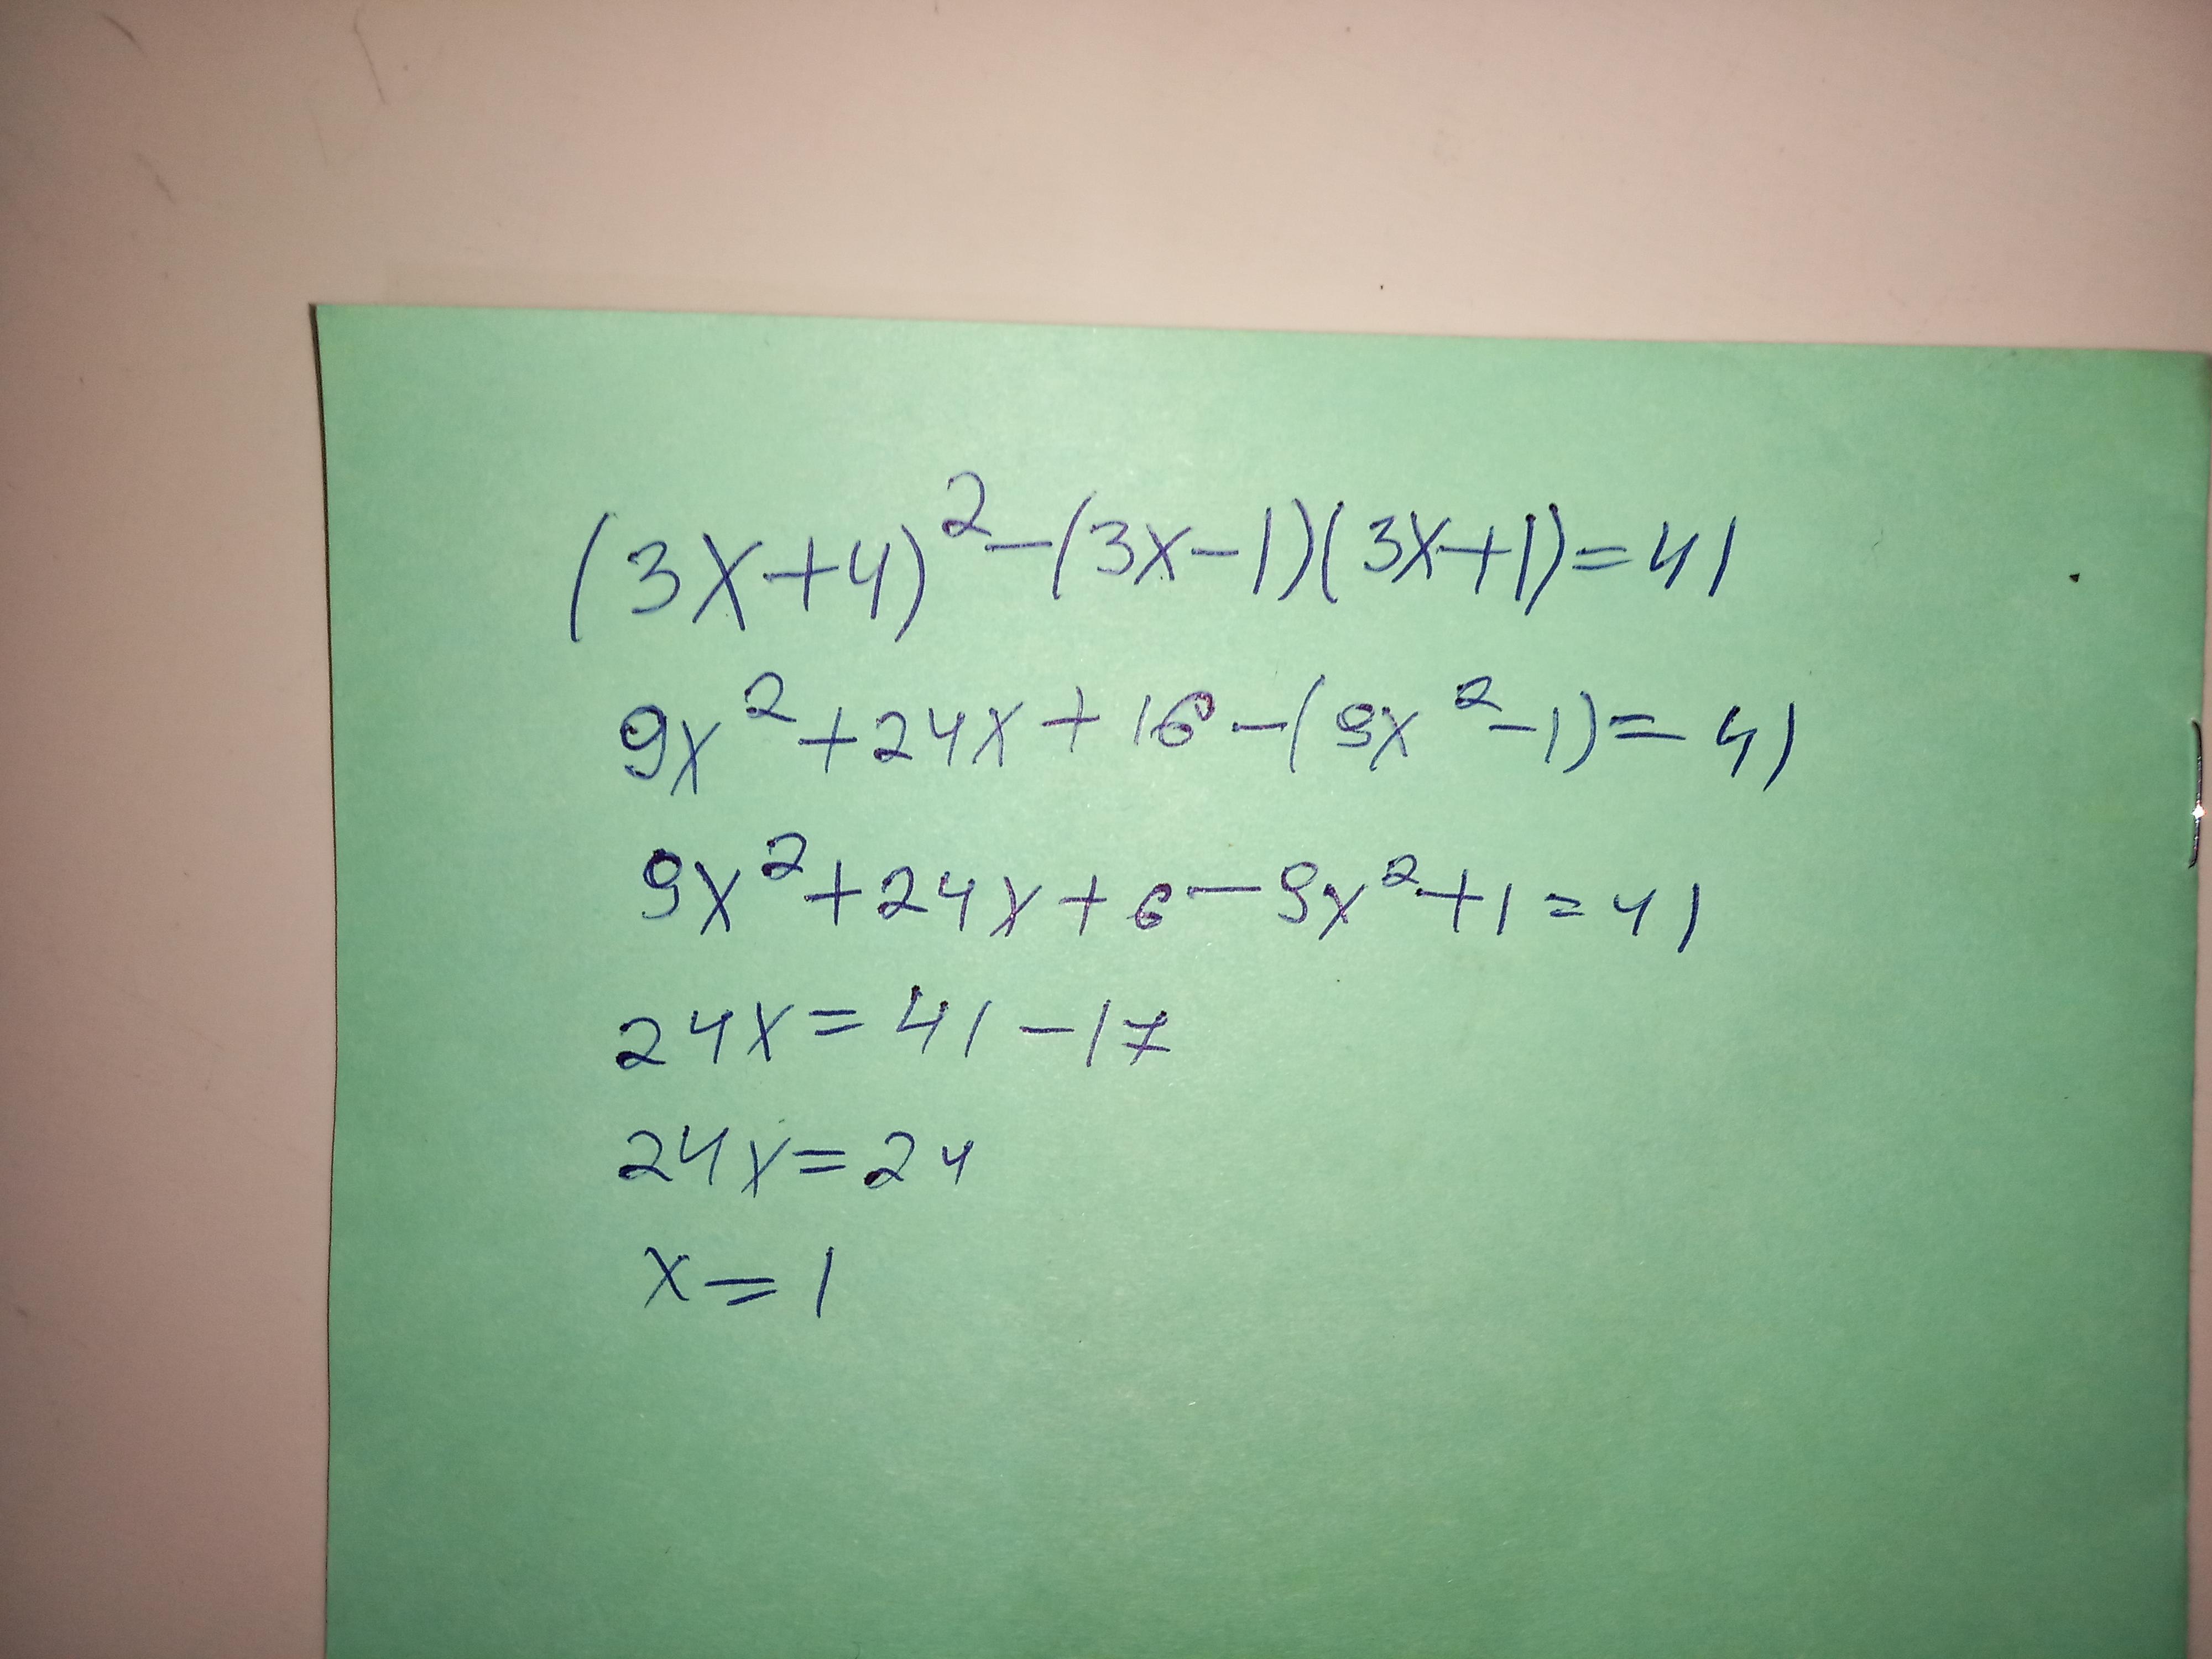 (3x+4)²-(3x-1)(3x+1)=41
9x²+24x+16-(9x²-1)=41
9x²+24x+6-9x²+1=41
24x=41-17
24x=24
x=1